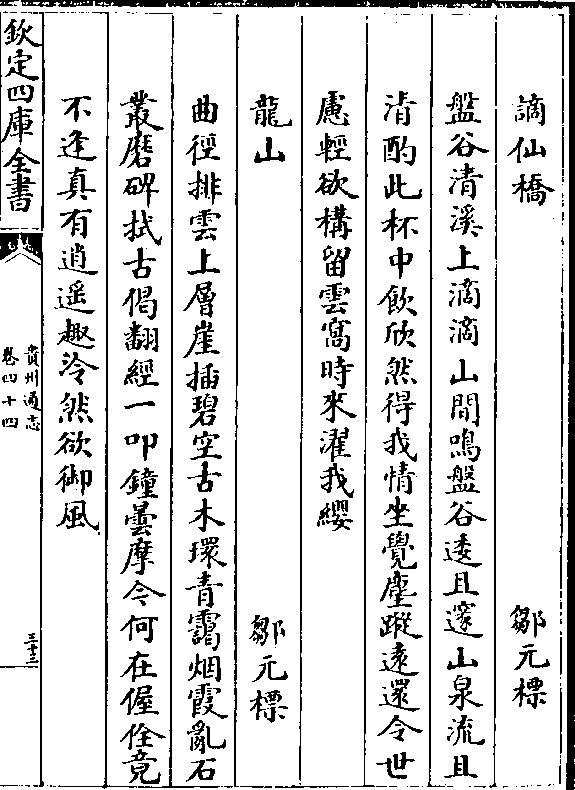 謫仙橋 鄒元標
盤谷清溪上滴滴山間鳴盤谷逶且邃山泉流且
清酌此杯中飲欣然得我情坐覺塵蹤遠還令世
慮輕欲構留雲窩時來濯我纓
龍山 鄒元標
曲徑排雲上層崖插碧空古木環青靄烟霞亂石
叢磨碑拭古偈翻經一叩鐘曇摩今何在偓佺竟
不逢真有逍遥趣泠然欲御風
欽定四庫全書
貴州通志
卷四十四
三十三